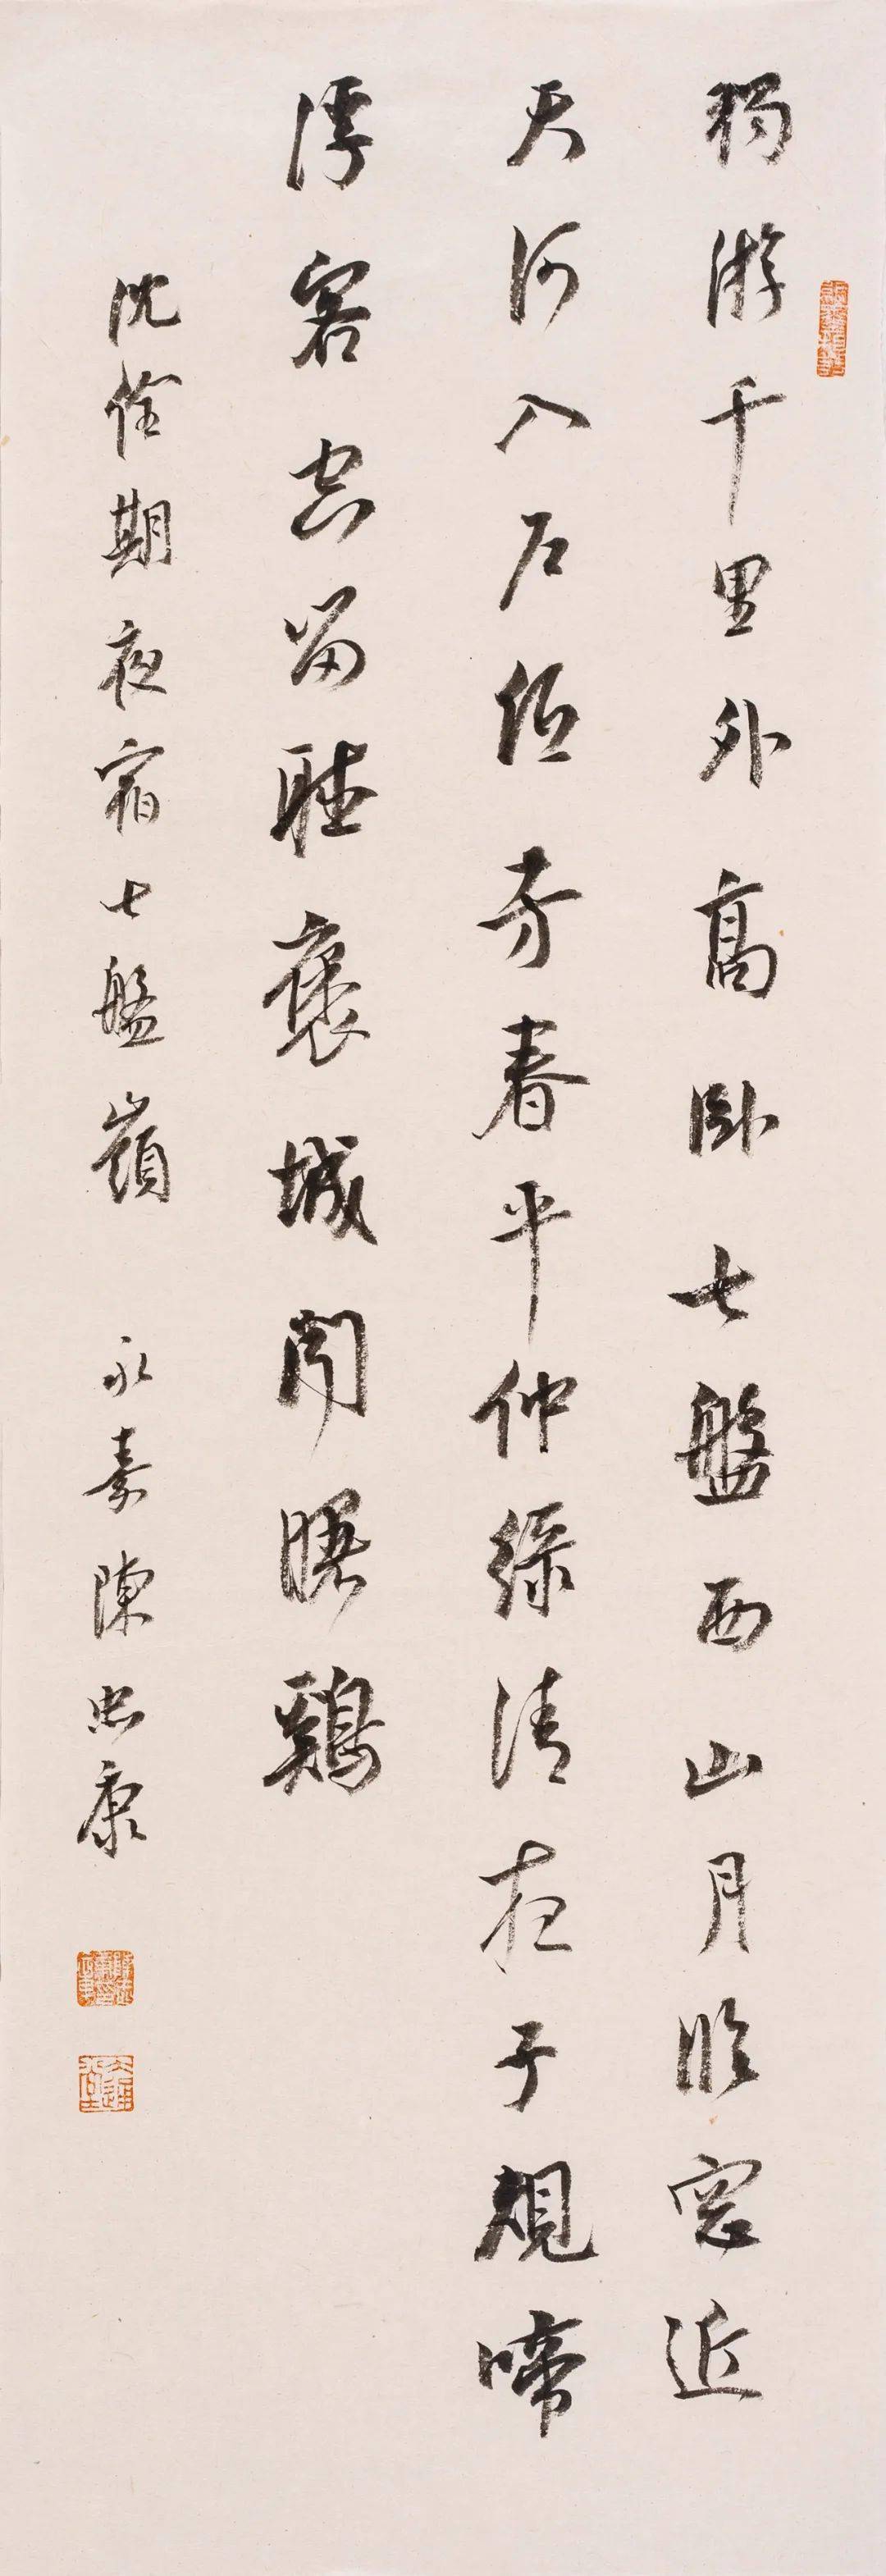 獨游千里外高卧七盤西山月臨窗近
天河入户低芳春平仲綠清夜子規啼
浮客空留聽褒城聞曙鷄
沈佺期夜宿七盤嶺 永素陳忠康